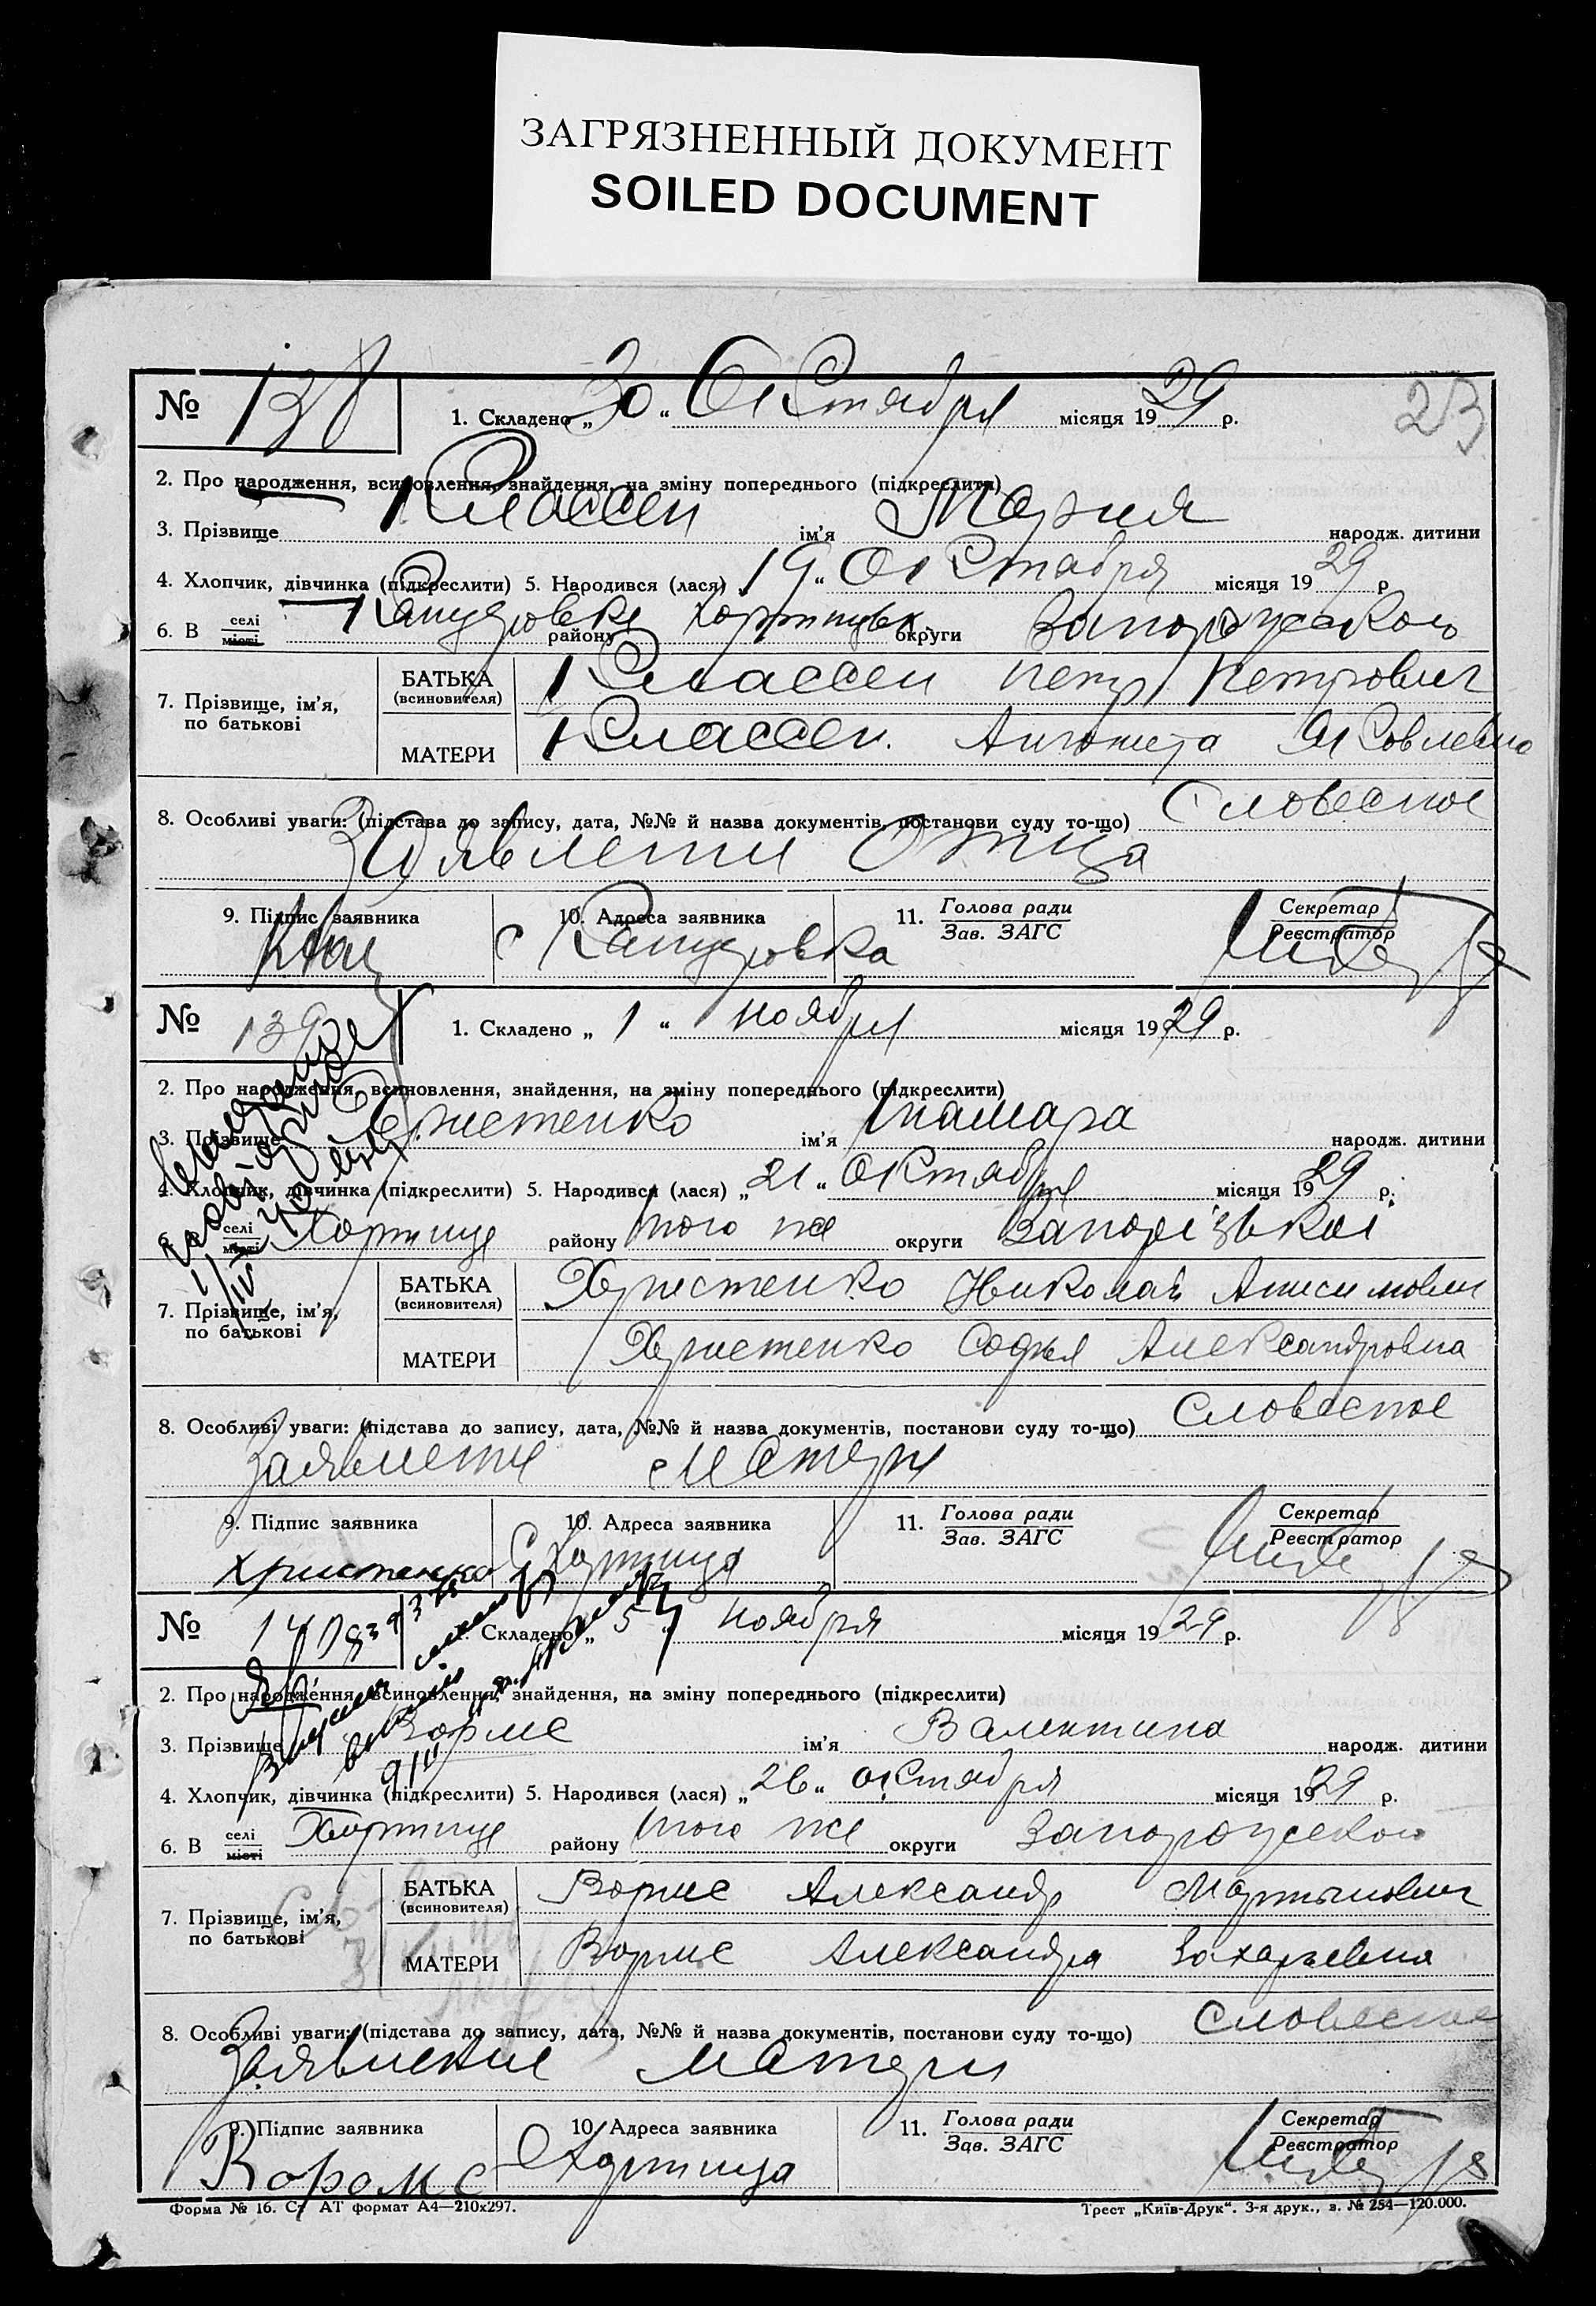 ЗАГРЯЗНЕННЫЙ ДОКУМЕНТ
SOILED DOCUMENT
23
№ 138 1. Складено „30“ Октября місяця 1929 р.
2. Про народження, всиновлення, знайдення, на зміну попереднього (підкреслити)
3. Прізвище Классен ім'я Мария народж. дитини
4. Хлопчик, дівчинка (підкреслити) 5. Народився (лася) 19 „ Октября місяця 1929 р
6. В селі місті району Хортицьк. округи Запорожской
7. Прізвище, ім'я, по батькові
БАТЬКА (всиновителя) Классен Петр Петрович
МАТЕРИ Классен. Яковлевна
8. Особливі уваги: (підстава до запису, дата, №№ й назва документів, постанови суду то-що) Словесное
Заявление Отца
9. Підпис заявника 10. Адреса заявника 11. Голова ради Зав. ЗАГС Секретар Реєстратор
№ 139 1. Складено „1“ ноября місяця 1929 р.
2. Про народження, всиновлення, знайдення, на зміну попереднього (підкреслити)
3. Прізвище Христенко ім'я Тамара народж. дитини
4. Хлопчик, дівчинка (підкреслити) 5. Народився (лася) „21“ Октября місяця 1929 р.
6. В селі місті Хортице району того же округи Запорізькоі
7. Прізвище, ім'я, по батькові
БАТЬКА (всиновителя) Христенко Николай Анисимович
МАТЕРИ Христенко Софья Александровна
8. Особливі уваги: (підстава до запису, дата, №№ й назва документів, постанови суду то-що) Словесное
Заявление Матери
9. Підпис заявника 10. Адреса заявника 11. Голова ради Зав. ЗАГС Секретар Реєстратор
Христенко С Хортица
№ 140 1. Складено „5“ ноября місяця 1929 р.
2. Про народження, всиновлення, знайдення, на зміну попереднього (підкреслити)
3. Прізвище Вормс ім'я Валентина народж. дитини
4. Хлопчик, дівчинка (підкреслити) 5. Народився (лася) „26“ октября місяця 1929 р.
6. В селі місті Хортице району того же округи Запорожской
7. Прізвище, ім'я, по батькові
БАТЬКА (всиновителя) Вормс Александр Мартынович
МАТЕРИ Вормс Александра Захарьевна
8. Особливі уваги: (підстава до запису, дата, №№ й назва документів, постанови суду то-що) Словесное
Заявление Матери
9. Підпис заявника 10. Адреса заявника 11. Голова ради Зав. ЗАГС Секретар Реєстратор
Воромс Хортица
Форма № 16. Ст АТ формат А4—210х297. Трест „Київ-Друк“. 3-я друк., з. № 254—120.000.